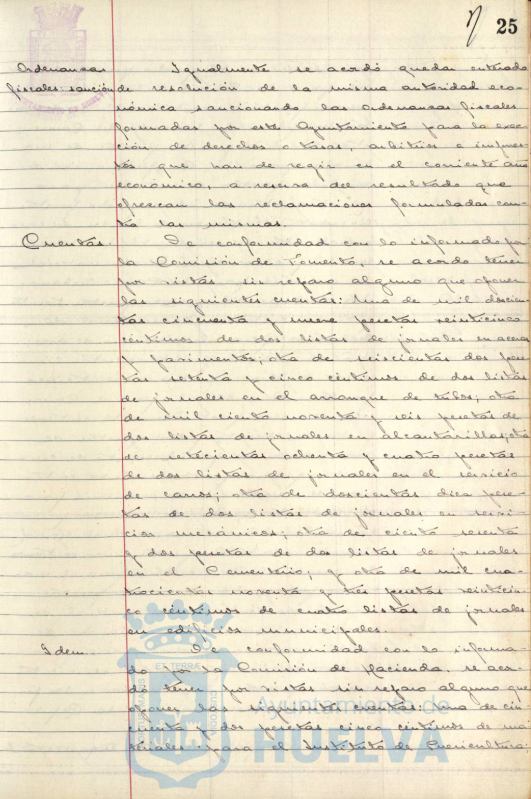 25
Ordenanzas
fiscales: sanción
Igualmente se acordó quedar enterado
de resolución de la misma autoridad eco-
nómica sancionando las ordenanzas fiscales
formadas por este Ayuntamiento para la exac-
ción de derechos o tasas, arbitrios e impues-
tos que han de regir en el corriente año
económico, a reserva del resultado que
ofrezcan las reclamaciones formuladas con-
tra las mismas.
Cuentas.
De conformidad con lo informado por
la Comisión de Fomento, se acordó tener
por vistas sin reparo alguno que oponer
las siguientes cuentas: Una de mil doscien-
tas cincuenta y nueve pesetas veinticinco
céntimos de dos listas de jornales en aceras
y pavimentos; otra de seiscientas dos pese-
tas setenta y cinco céntimos de dos listas
de jornales en el arranque de tubos; otra
de mil ciento noventa y seis pesetas de
dos listas de jornales en alcantarillas; otra
de setecientas ochenta y cuatro pesetas
de dos listas de jornales en el servicio
de carros; otra de doscientas diez pese-
tas de dos listas de jornales en servi-
cios mecánicos; otra de ciento sesenta
y dos pesetas de dos listas de jornales
en el Cementerio; y otra de mil cua-
trocientas noventa y tres pesetas veinticin-
co céntimos de cuatro listas de jornales
en edificios municipales.
Idem.
De conformidad con lo informa-
do por la Comisión de Hacienda, se acor-
dó tener por vistas sin reparo alguno que
oponer las siguientes cuentas: Una de cin-
cuenta y dos pesetas cinco céntimos de ma-
teriales para el Instituto de Puericultura;
Ayuntamiento de
HUELVA